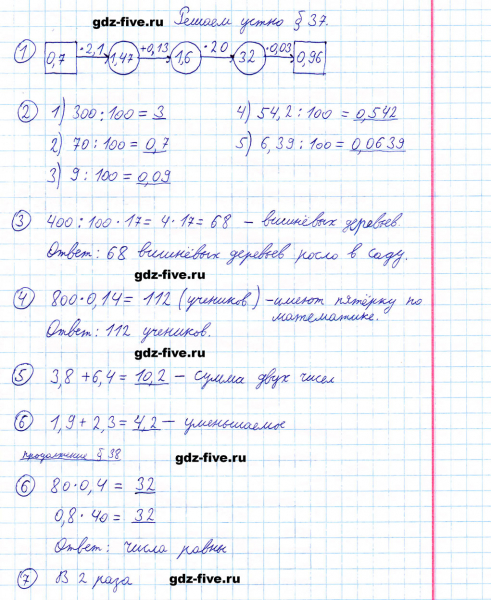 gdz-five.ru Решаем устно § 37.
1 0,7 ·2,1 1,47 +0,13 1,6 ·20 32 ·0,03 0,96
2 1) 300 : 100 = 3 4) 54,2 : 100 = 0,542
2) 70 : 100 = 0,7 5) 6,39 : 100 = 0,0639
3) 9 : 100 = 0,09
3 400 : 100 · 17 = 4 · 17 = 68 – вишнёвых деревьев.
Ответ: 68 вишнёвых деревьев росло в саду.
gdz-five.ru
4 800 · 0,14 = 112 (учеников) – имеют пятёрку по
математике.
Ответ: 112 учеников.
gdz-five.ru
5 3,8 + 6,4 = 10,2 – сумма двух чисел
gdz-five.ru
6 1,9 + 2,3 = 4,2 – уменьшаемое
продолжение § 38
gdz-five.ru
6 80 · 0,4 = 32
0,8 · 40 = 32
Ответ: числа равны
7 В 2 раза gdz-five.ru